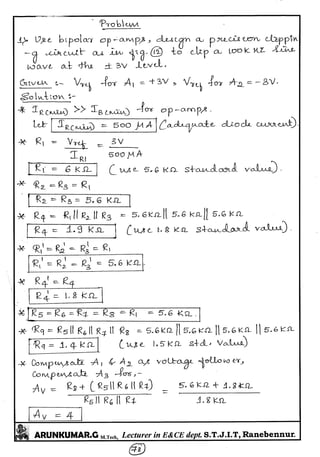 Problem
1> Use bipolar op-amps, design a precision clippin
-g circuit as in fig.(12) to clip a 100K HZ sine
wave at the ± 3V level.
Given :- Vref for A1 = +3V , Vref for A2 = -3V.
Solution :-
* IR(min) >> IB(min) for op-amps.
let IR(min) = 500 µA (adequate diode current).
* R1 = Vref / IR1 = 3V / 500 µA
R1 = 6 KΩ (use 5.6 KΩ standard value).
* R2 = R3 = R1
R2 = R3 = 5.6 KΩ
* R4 = R1 || R2 || R3 = 5.6KΩ || 5.6 KΩ || 5.6 KΩ
R4 = 1.9 KΩ (use 1.8 KΩ standard value).
* R1' = R2' = R3' = R1
R1' = R2' = R3' = 5.6 KΩ
* R4' = R4
R4' = 1.8 KΩ
* R5 = R6 = R7 = R8 = R1 = 5.6 KΩ
* R9 = R5 || R6 || R7 || R8 = 5.6KΩ || 5.6KΩ || 5.6KΩ || 5.6KΩ
R9 = 1.4 KΩ (use 1.5KΩ std. Value)
* Compensate A1 & A2 as voltage follower,
Compensate A3 for,-
Av = R8 + (R5 || R6 || R7) / R5 || R6 || R7 = 5.6KΩ + 1.8KΩ / 1.8KΩ
Av = 4
ARUNKUMAR.G M.Tech, Lecturer in E&CE dept. S.T.J.I.T, Ranebennur.